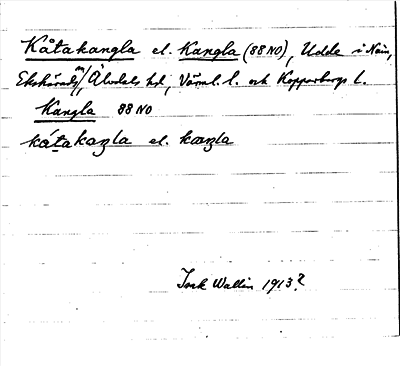 Kåtakangla el. Kangla (88 NO), Udde i Näın,
Ekshärads/Älvdals hd, Värml. l. och Kopparbergs l.
Kangla 88 NO
kátakaŋla el. kaŋla
Wallin 1913?